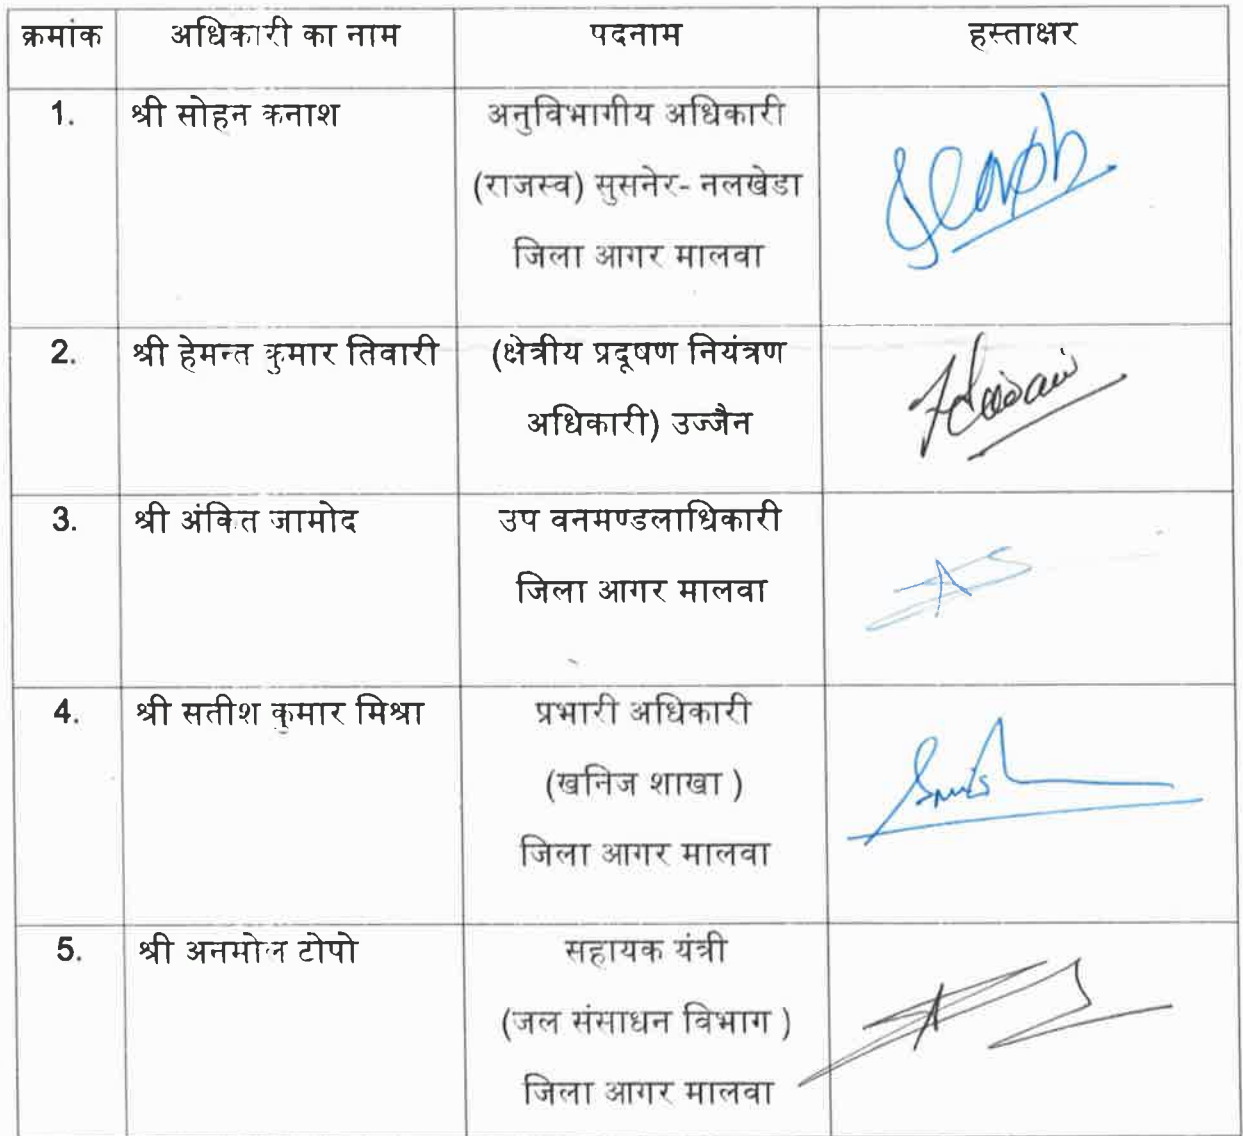 क्रमांक अधिकारी का नाम पदनाम हस्ताक्षर
1. श्री सोहन कनाश अनुविभागीय अधिकारी
(राजस्व) सुसनेर- नलखेडा
जिला आगर मालवा
2. श्री हेमन्त कुमार तिवारी (क्षेत्रीय प्रदूषण नियंत्रण
अधिकारी) उज्जैन
3. श्री अंकित जामोद उप वनमण्डलाधिकारी
जिला आगर मालवा
4. श्री सतीश कुमार मिश्रा प्रभारी अधिकारी
(खनिज शाखा )
जिला आगर मालवा
5. श्री अनमोल टोपो सहायक यंत्री
(जल संसाधन विभाग )
जिला आगर मालवा